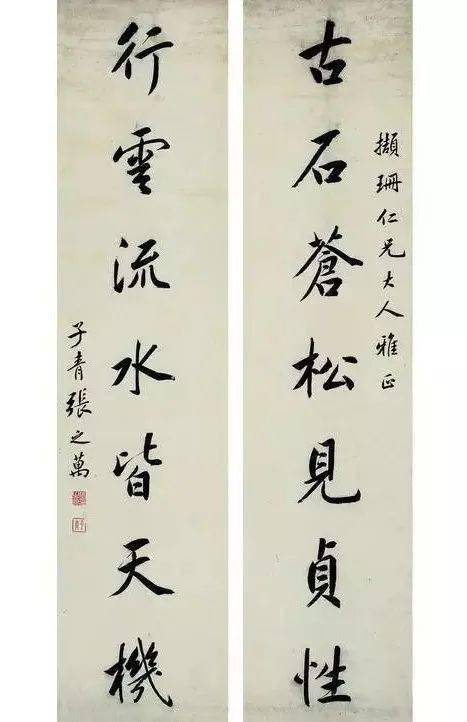 擷珊仁兄大人雅正
古石蒼松見貞性
行雲流水皆天機
子青張之萬